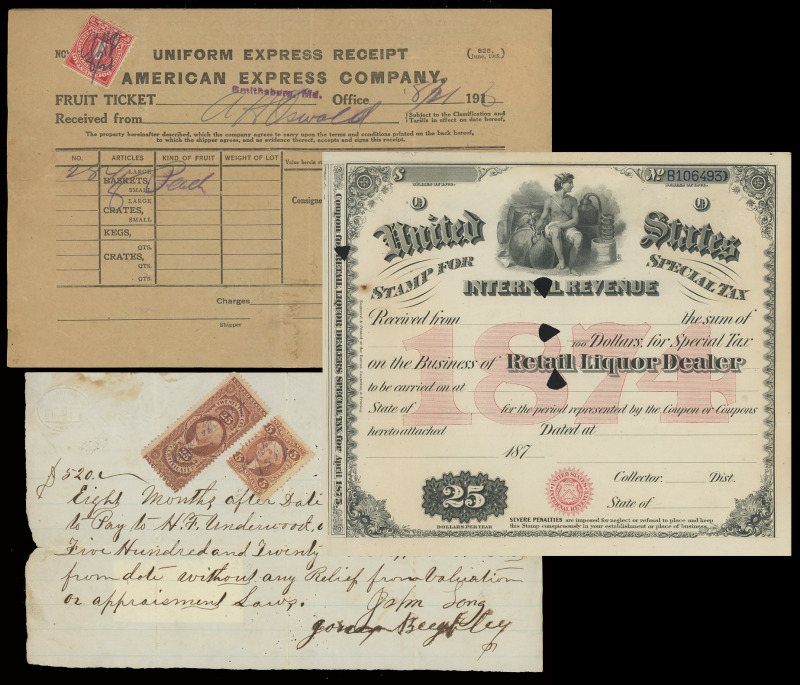 NO.
UNIFORM EXPRESS RECEIPT
(828, June, 1913.)
AMERICAN EXPRESS COMPANY.
Smithsburg, Md.
FRUIT TICKET Office 8/21 1916
Received from A H Oswald
Subject to the Classification and
Tariffs in effect on date hereof,
The property hereinafter described, which the company agrees to carry upon the terms and conditions printed on the back hereof,
to which the shipper agrees, and as evidence thereof, accepts and signs this receipt.
NO. ARTICLES KIND OF FRUIT WEIGHT OF LOT Value herein st
28 LARGE BASKETS, SMALL Peach
LARGE CRATES, SMALL
Consigne
KEGS,
QTS. CRATES, QTS.
QTS.
Charges
Shipper
$
No B106495
United States
STAMP FOR SPECIAL TAX
INTERNAL REVENUE
Received from the sum of
/100 Dollars, for Special Tax
on the Business of Retail Liquor Dealer
to be carried on at
State of for the period represented by the Coupon or Coupons
hereto attached Dated at
187
1874
Collector. Dist.
State of
25
DOLLARS PER YEAR
SEVERE PENALTIES are imposed for neglect or refusal to place and keep
this Stamp conspicuously in your establishment or place of business.
Coupon for RETAIL LIQUOR DEALERS SPECIAL TAX for April 1875.
25 25
5 5
$520.
Eight Months after Date
to Pay to H. F. Underwood,
Five Hundred and Twenty
from date without any Relief from Valuation
or appraisment Laws.
John Long